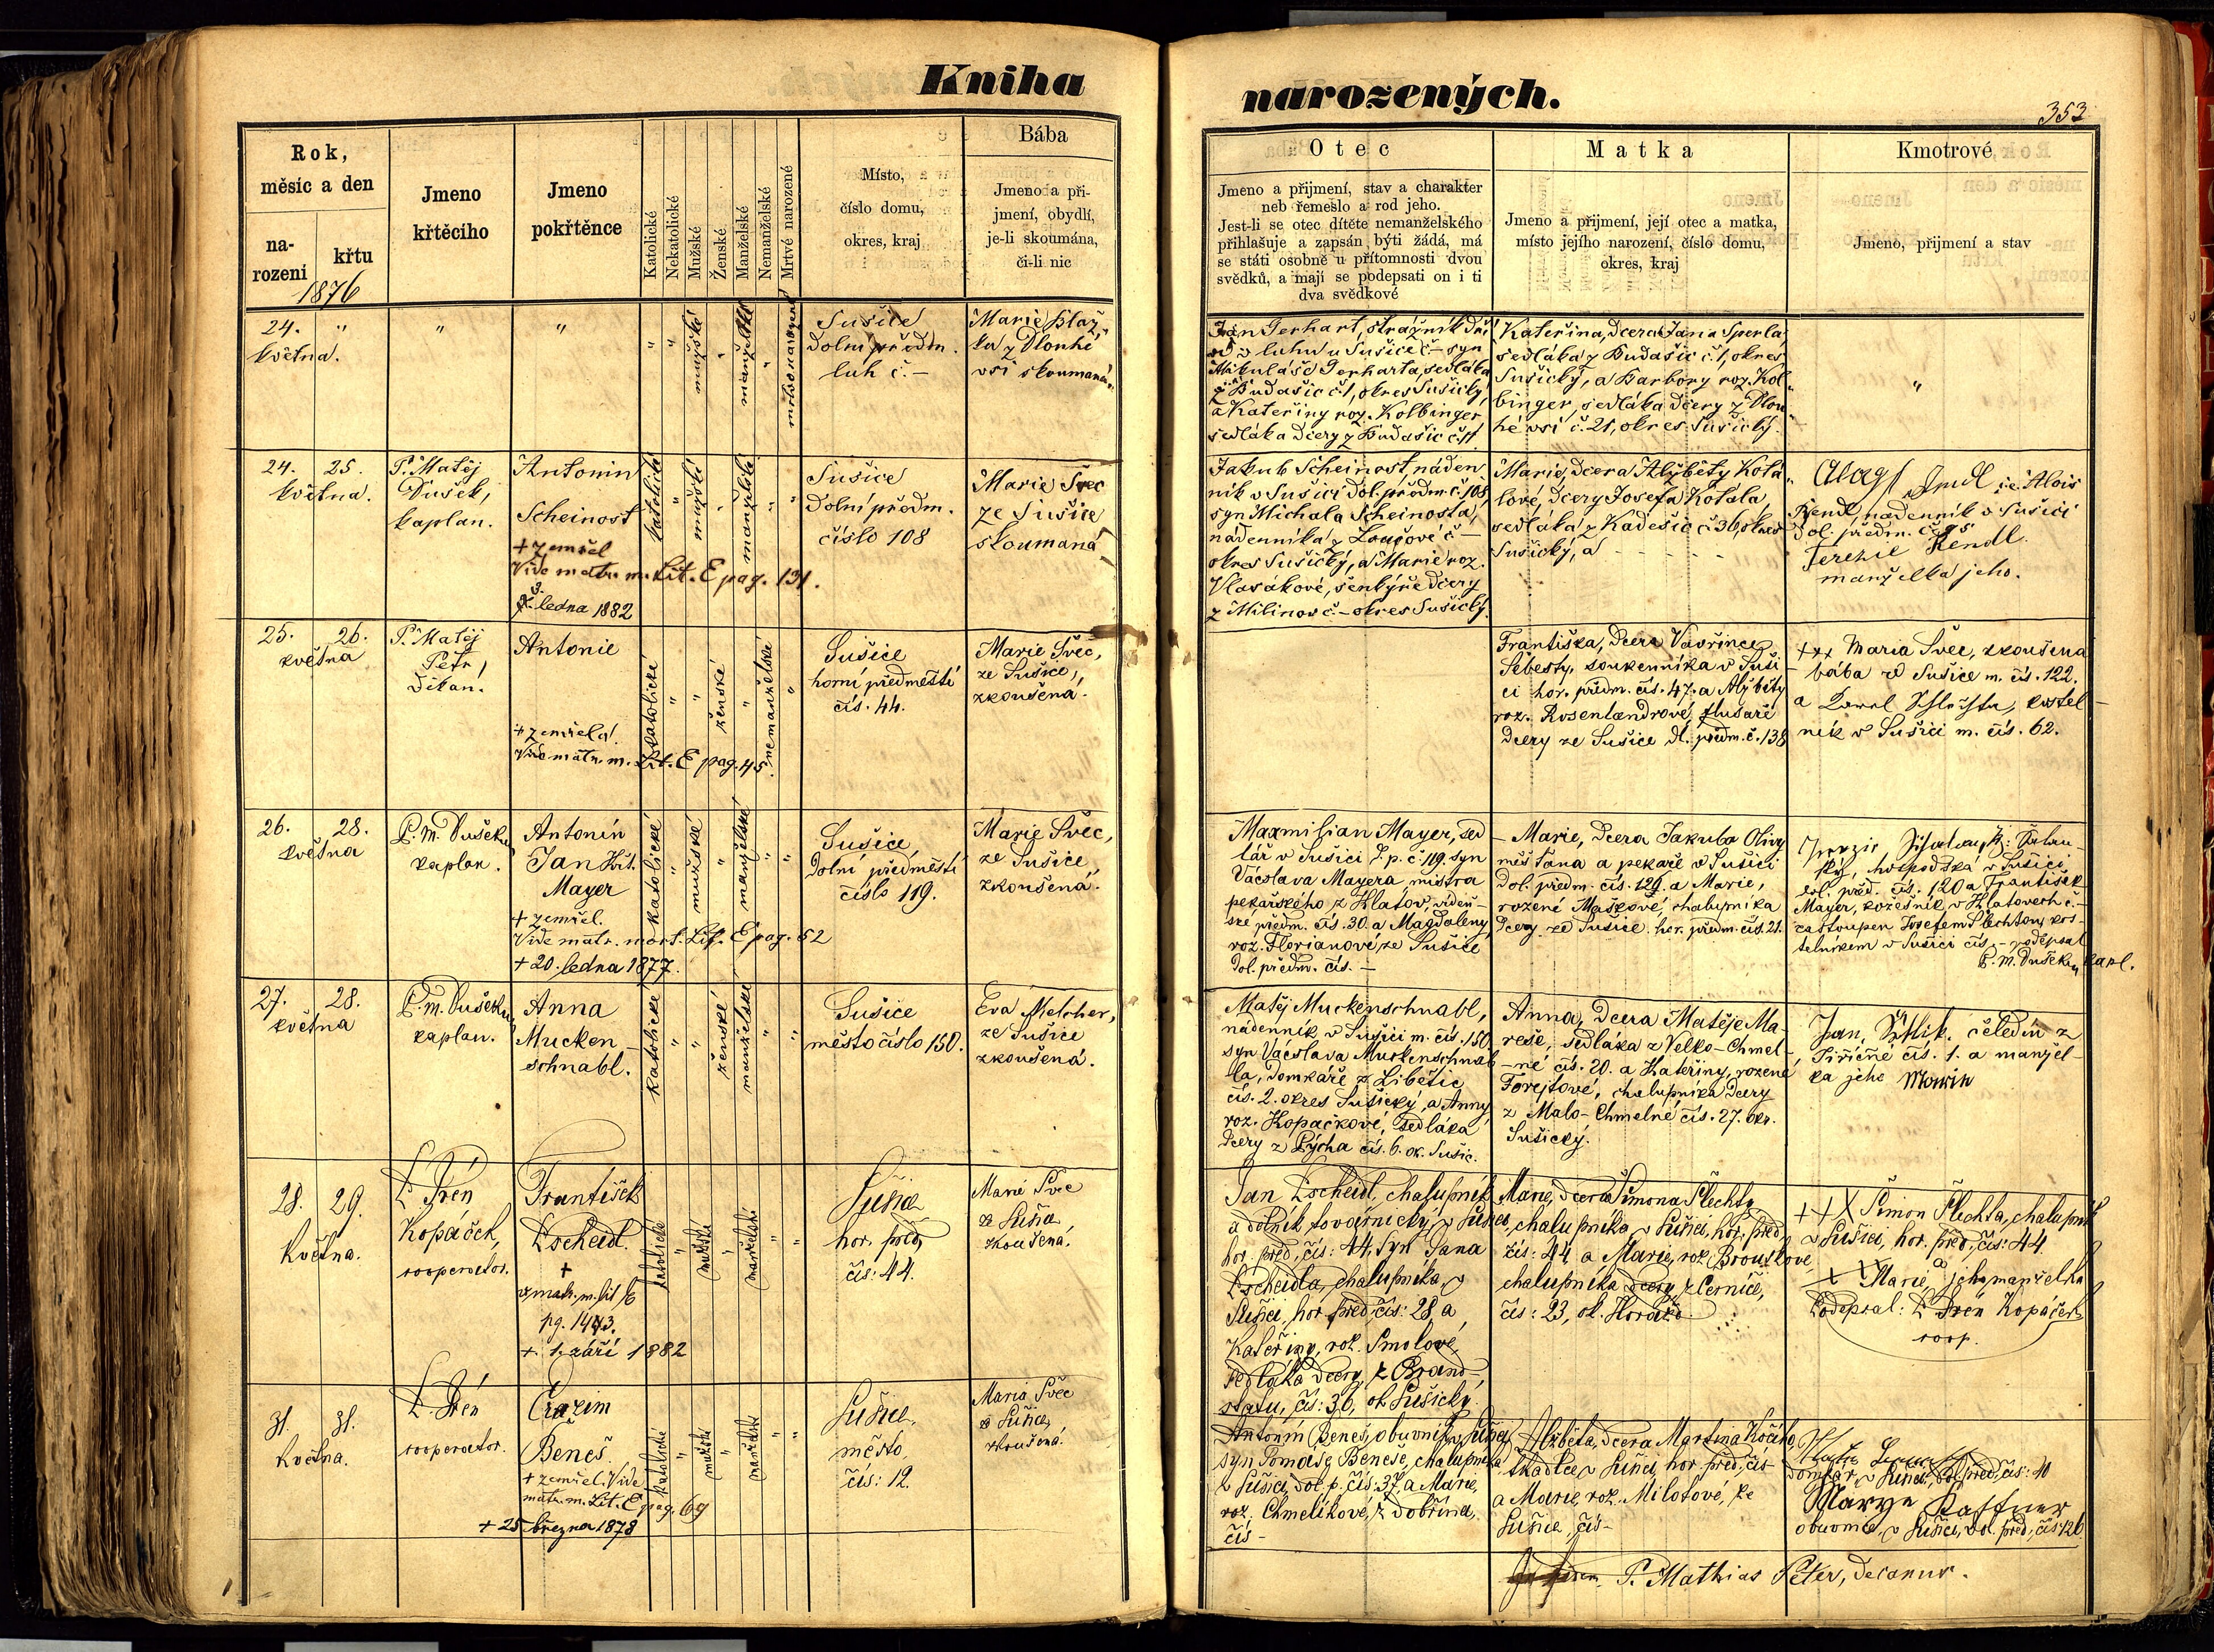 Kniha
narozených.
353
Rok,
měsíc a den
na-
rozeni
křtu
1876
Jmeno
křtěcího
Jmeno
pokřtěnce
Katolické
Nekatolické
Mužské
Ženské
Manželské
Nemanželské
Mrtvé narozené
Místo,
číslo domu,
okres, kraj
Bába
Jmeno a při-
jmení, obydlí,
je-li skoumána,
či-li nic
Otec
Jmeno a přijmení, stav a charakter
neb řemeslo a rod jeho.
Jest-li se otec dítěte nemanželského
přihlašuje a zapsán býti žádá, má
se státi osobně u přítomnosti dvou
svědků, a mají se podepsati on i ti
dva svědkové
Matka
Jmeno a přijmení, její otec a matka,
místo jejího narození, číslo domu,
okres, kraj
Kmotrové
Jmeno, přijmení a stav
24. "
května.
"
"
" " mužské " manželské " mrtvonarozené
Sušice
Dolní předm.
luh č. –
Marie Blaž-
ka z Dlouhé
vsi skoumaná
Jan Gerhart, strážník
luhu u Sušice č – syn
Mikuláše Gerharta, sedláka
z Budašic č. 1, okres Sušický,
a Kateřiny roz. Kolbinger
sedláka dcery z Budašic č. 11
Kateřina, dcera Jana Sperla,
sedláka z Budašic č. 1, okres
Sušický, a Barbory roz. Kol-
binger, sedláka dcery z Dlou-
hé vsi č. 21, okres Sušický.
"
24. 25.
května.
P. Matěj
Dušek,
kaplan.
Antonin
Scheinost
+ zemřel
Vide matr. m. Lit. E pag. 131.
3. ledna 1882
katolické " mužské " manželské " "
Sušice
Dolní předm.
číslo 108
Marie Švec
ze Sušice
skoumaná
Jakub Scheinost, náden
ník v Sušici dol. předm. č. 108,
syn Michala Scheinosta,
nádenníka z č –
okres Sušický, a Marie roz.
Vlasákové, šenkýře dcery
z Milinov č. – okres Sušický.
Marie, dcera Alžběty Kotá
lové, dcery Josefa Kotála,
sedláka z Kadešic č. 36, okres
Sušický, a – – – – –
i.e. Alois
Rendl, nádenník v Sušici
Dol. předm. č. 95
Terezie Rendl.
manželka jeho.
25. 26.
května
P. Matěj
Petr,
děkan.
Antonie
+ zemřela.
Vide matr. m. Lit. E pag. 45.
katolické " " ženské " nemanželské "
Sušice
horní předměstí
čís. 44.
Marie Švec,
ze Sušice,
zkoušena.
Františka, dcera Vavřince
Šebesty, soukenníka v Suši
ci hor. předm. čís. 47. a Alžběty
roz. Rosenlandrové,
dcery ze Sušice dl. předm. č. 138
+++ Maria Švec, zkoušená
bába ze Sušice m. čís. 122.
a Karel kostel
ník v Sušici m. čís. 62.
26. 28.
května
P. M. Dušek,
kaplan.
Antonín
Jan Křt.
Mayer
+ zemřel.
Vide matr. mort. Lit. E pag. 52
+ 20. ledna 1877.
katolické " mužské " manželské " "
Sušice,
Dolní předměstí
číslo 119.
Marie Švec,
ze Sušice
zkoušená.
Maxmilian Mayer, sed
lář v Sušici d. p. č. 119. syn
Václava Mayera, mistra
pekařského z Klatov, vídeň-
ské předm. čís. 30. a Magdaleny
roz. Florianové, ze Sušice
Dol. předm. čís. –
– Marie, dcera Jakuba Olivy
měšťana a pekaře v Sušici
Dol. předm. čís. 129. a Marie,
rozené Maškové, chalupníka
dcery ze Sušice. hor. předm. čís. 21.
v Sušici
dol. před. čís. 120 a František
Mayer, kožešník v Klatovech č. –
zastoupen Josefem Šlechtou, kos-
telníkem v Sušici čís. – podepsal
P. M. Dušek, kapl.
27. 28.
května
P. M. Dušek,
kaplan.
Anna
Mucken-
schnabl.
katolické " " ženské manželské " "
Sušice
město číslo 150.
Eva Melcher,
ze Sušice
zkoušená.
Matěj Muckenschnabl,
nádenník v Sušici m. čís. 150.
syn Václava Muckenschnab
la, domkáře z Libětic
čís. 2. okres Sušický, a Anny
roz. Kopačkové, sedláka
dcery z Pýcha čís. 6. ok. Sušic.
Anna, dcera Matěje Ma-
reše, sedláka z Velko-Chmel-
né čís. 20. a Kateřiny, rozené
Forejtové, chalupníka dcery
z Malo-Chmelné čís. 27. okr.
Sušický.
Jan čeledín z
Jiřičné čís. 1. a manžel-
ka jeho
28. 29.
Května.
P. Irén
Kopáček,
cooperator.
František
Tscheidl.
+
v. matr. m. lit E
pg. 143.
+ 1. září 1882
katolické " mužské " manželské " "
Sušice
hor. před.
čís: 44.
Marie Švec
ze Sušice
zkoušená.
Jan Tscheidl, chalupník
a dělník továrnický v Sušici,
hor. před. čís: 44, syn Jana
Tscheidla, chalupníka v
Sušici, hor. před. čís: 28, a
Kateřiny, roz. Smolové,
sedláka dcery z Brand-
statu, čís: 36, ok. Sušický.
Marie, dcera Šimona Šlechty,
chalupníka v Sušici, hor. před.
čís: 44, a Marie, roz. Brouskové,
chalupníka dcery z Černíče,
čís: 23, ok. Horažd.
+++ Šimon Šlechta, chalupník
v Sušici, hor. před. čís: 44.
a
+++ Marie, jeho manželka
Podepsal: P. Irén Kopáček
coop.
31. 31.
Května.
P. Irén
cooperator.
Erazim
Beneš.
+ zemřel. Vide
matr. m. Lit. E pag. 69
+ 25. března 1878
katolické " mužské " manželské " "
Sušice,
město,
čís: 12.
Maria Švec
ze Sušice,
zkoušená.
Antonín Beneš, obuvník v Sušici,
syn Tomáše Beneše, chalupníka
v Sušici, dol. p. čís: 37, a Marie,
roz. Chmelíkové, z Dobřína,
čís –
Alžběta, dcera Martina Kočího,
tkadlce v Sušici, hor. před. čís –
a Marie, roz. Milotové, ze
Sušice, čís –
domkář v Sušici, dol. před. čís: 40
Marye Kaffner
obuvnice v Sušici, dol. před. čís: 126
P. Mathias Peter, decanus.